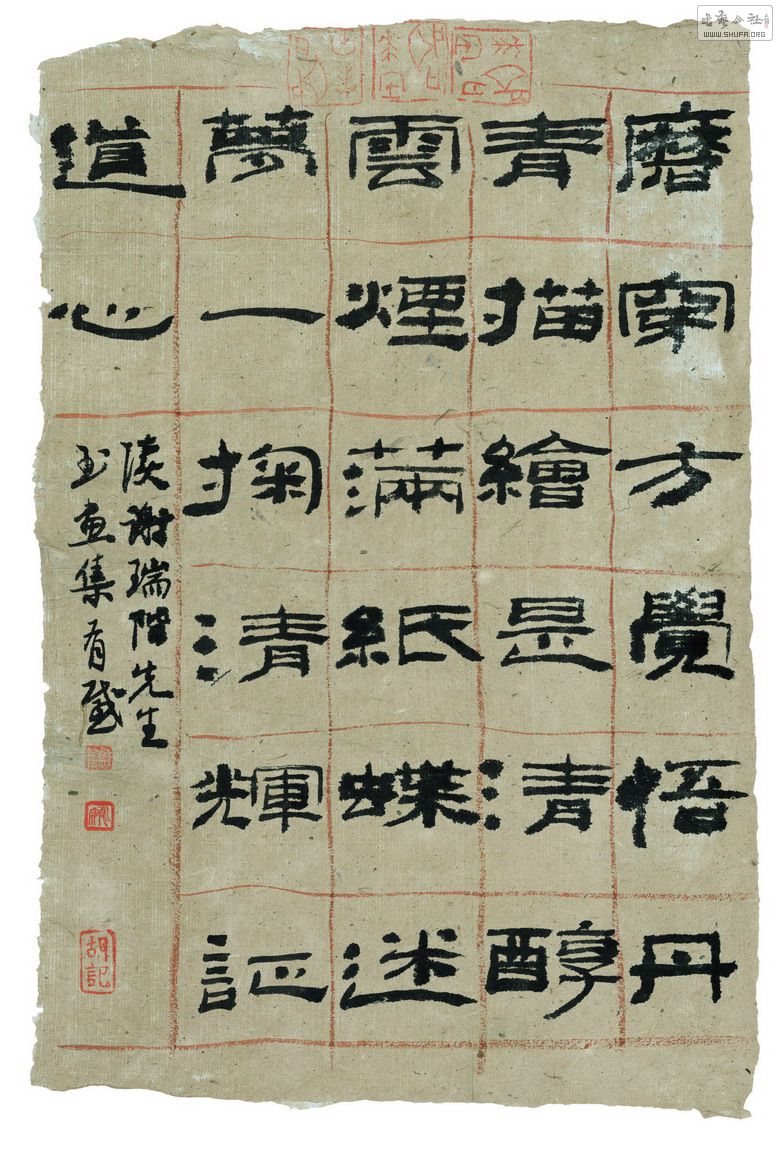 磨穿方覺悟丹
青描繪是清醇
雲煙滿紙蝶迷
夢一掬清輝証
道心
读謝瑞階先生
书画集有感
胡記
书艺公社
WWW.SHUFA.ORG